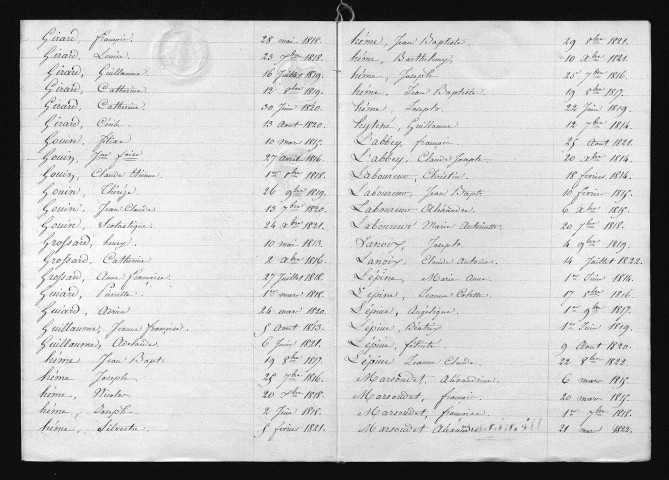 Girard, françois. 28 mai 1818.
Girard, Louise 23 1818.
Girard, Guillaume. 16 Juillet 1819.
Girard, Catherine 12 1819.
Girard, Catherine. 30 Juin 1820.
Girard, Cécile 13 Aout 1820.
Gouin, 10 mars 1815.
Gouin, 27 avril 1816.
Gouin, Claude Etienne 1er 1818.
Gouin, Thérèse. 26 9bre 1819.
Gouin. Jean Claude 13 7bre 1820.
Gouin Scolastique. 24 xbre 1821.
Grossard, henry. 10 mai 1813.
Grossard, Catherine 2 xbre 1816.
Grossard, Anne françoise. 27 Juillet 1818.
Guiard, Pierrette 1er mars 1818.
Guiard, 24 mars 1820.
Guillaume, Jeanne françoise. 5 Aout 1813.
Guillaume, Adelaïde. 6 Juin 1821.
héme Jean Bapt. 19 8bre 1817.
héme Joseph 25 7bre 1816.
héme, Nicolas 20 1818.
héme, Joseph. 2 Juin 1818.
héme, Silvestre 5 février 1821.
héme, Jean Baptiste. 29 8bre 1821.
héme, Barthelemy 10 xbre 1821.
héme, Joseph 25 7bre 1816.
héme, Jean Baptiste 19 8bre 1817.
héme Joseph. 24 Juin 1819.
Guillaume 12 7bre 1814.
L'abbey, français. 25 Aout 1821.
L'abbey, Claude Joseph 20 xbre 1814.
Laboureur, Christin 18 février 1814.
Laboureur, Jean Bapt. 10 février 1815.
Laboureur Alexandre 6 xbre 1815.
Laboureur Marie Antoinette 20 7bre 1818.
Lanoix, Joseph 4 9bre 1819.
Lanoix, Claude Antoine 14 Juillet 1822.
Lépine, Marie Anne. 1er Juin 1814.
Lépine, Jeanne 17 8bre 1816.
Lépine, Angélique. 1er 9bre 1817.
Lépine, 1er Juin 1819.
Lépine, 9 Aout 1820.
Lépine Jeanne Claude. 22 8bre 1822.
Marsoudet, Alexandrine 6 mars 1815.
Marsoudet, françois. 20 mars 1815.
Marsoudet, françoise 1er 7bre 1818.
Marsoudet Alexandre 21 mai 1822.